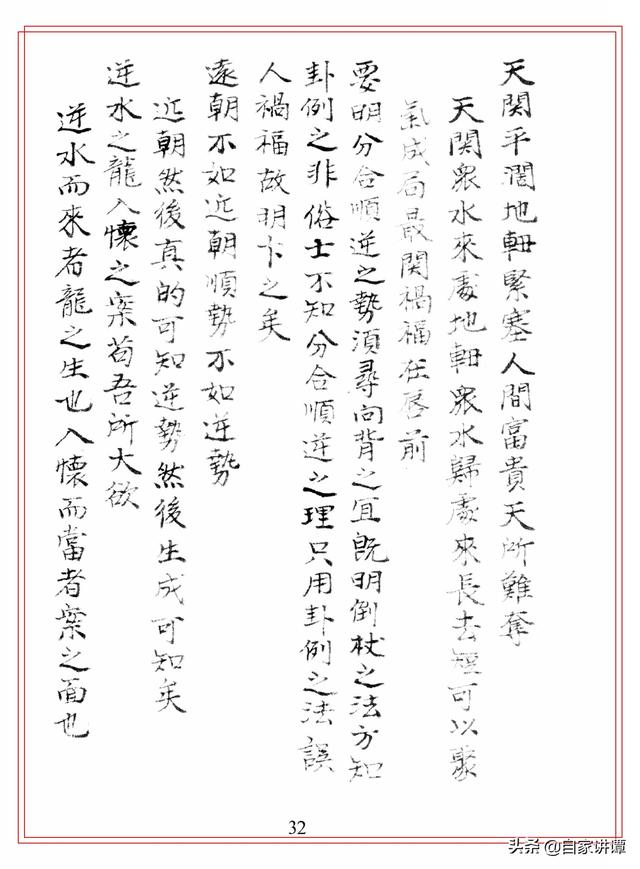 天関平濶地軸緊塞人間富貴天所難奪
天関衆水來處地軸衆水歸處來長去短可以聚
氣成局最関禍福在唇前
要明分合順逆之勢湏尋向背之宜旣明倒杖之法方知
卦例之非俗士不知分合順逆之理只用卦例之法誤
人禍福故明卞之矣
遠朝不如近朝順勢不如逆勢
近朝然後真的可知逆勢然後生成可知矣
逆水之龍入懷之案苟吾所大欲
逆水而來者龍之生也入懷而當者案之面也
32
头条 @自家讲谭